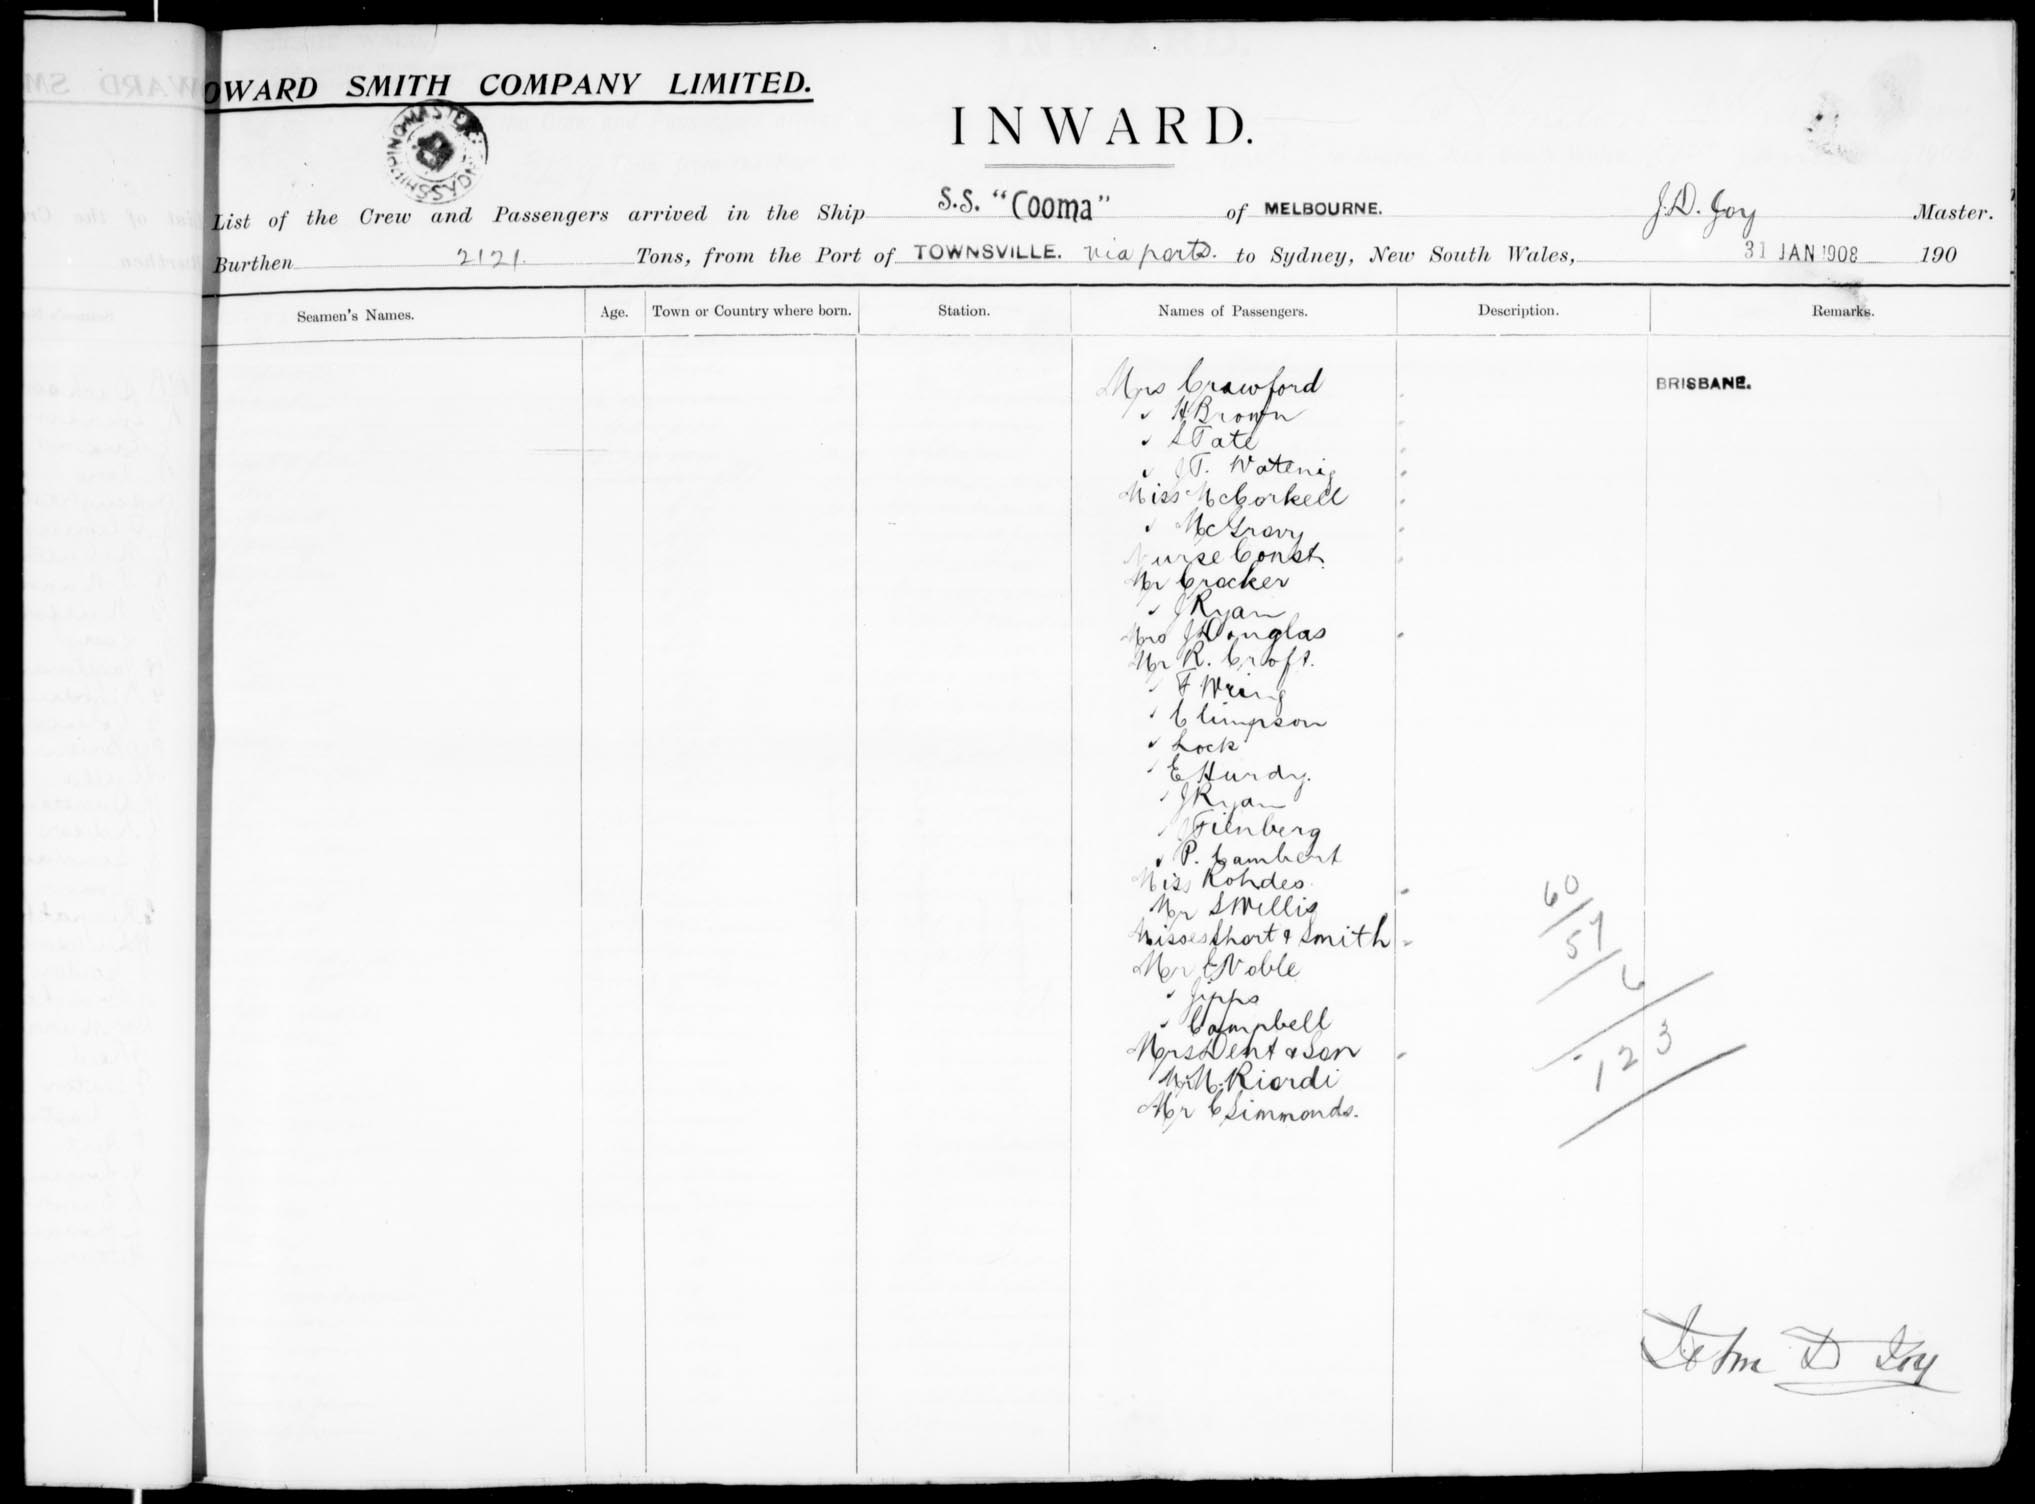 OWARD SMITH COMPANY LIMITED.
INWARD.
SHIPPING MASTER
List of the Crew and Passengers arrived in the Ship S.S. "Cooma" of MELBOURNE. J.D. Joy Master.
Burthen 2121. Tons, from the Port of TOWNSVILLE. via ports. to Sydney, New South Wales, 31 JAN 1908 190
Seamen's Names. Age. Town or Country where born. Station. Names of Passengers. Description. Remarks.
Mrs Crawford BRISBANE.
" H Brown
" S Tate
" J T. Watering
Miss McCorkell
" McGravy
Nurse Const.
Mr Crocker
" J Ryan
Mrs J Douglas
Mr R. Croft.
" F Wring
" Climpson
" Lock
" E Hurdy.
" J Ryan
" J Filnberg
" P. Lambert
Miss Rohdes
Mr S Willis
Misses Short & Smith
Mr E Noble
" Jipps
" Campbell
Mrs Dent & Son
Mr M. Riordi
Mr C Simmonds.
60
57
6
123
John D Joy